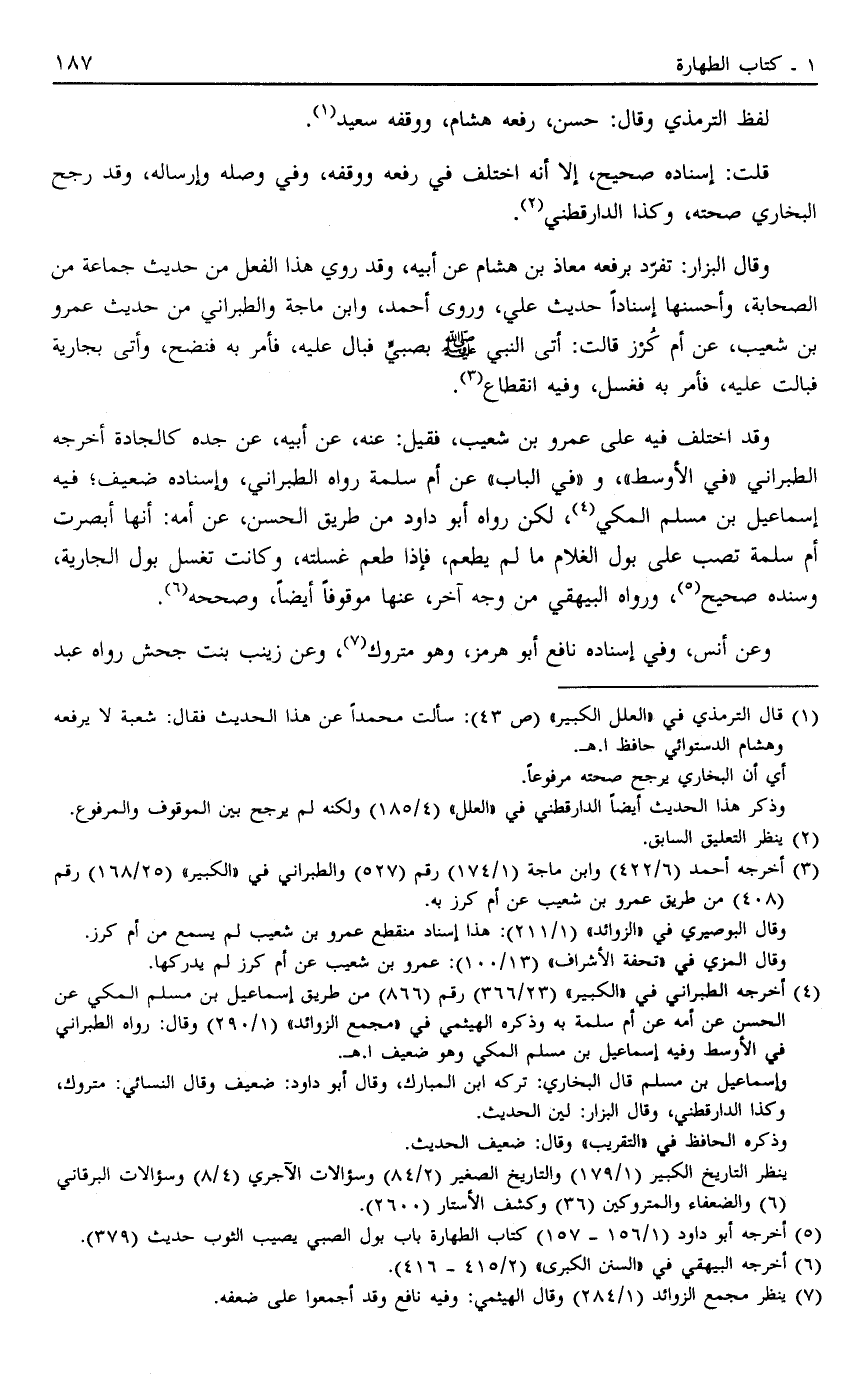 ١ ـ كتاب الطهارة ١٨٧
لفظ الترمذي وقال: حسن، رفعه هشام، ووقفه سعيد(١).
قلت: إسناده صحيح، إلا أنه اختلف في رفعه ووقفه، وفي وصله وإرساله، وقد رجح
البخاري صحته، وكذا الدارقطني(٢).
وقال البزار: تفرّد برفعه معاذ بن هشام عن أبيه، وقد روي هذا الفعل من حديث جماعة من
الصحابة، وأحسنها إسناداً حديث علي، وروى أحمد، وابن ماجة والطبراني من حديث عمرو
بن شعيب، عن أم كُرْز قالت: أتى النبي ﷺ بصبيٍّ فبال عليه، فأمر به فنضح، وأتى بجارية
فبالت عليه، فأمر به فغسل، وفيه انقطاع(٣).
وقد اختلف فيه على عمرو بن شعيب، فقيل: عنه، عن أبيه، عن جده كالجادة أخرجه
الطبراني «في الأوسط»، و «في الباب» عن أم سلمة رواه الطبراني، وإسناده ضعيف؛ فيه
إسماعيل بن مسلم المكي(٤)، لكن رواه أبو داود من طريق الحسن، عن أمه: أنها أبصرت
أم سلمة تصب على بول الغلام ما لم يطعم، فإذا طعم غسلته، وكانت تغسل بول الجارية،
وسنده صحيح(٥)، ورواه البيهقي من وجه آخر، عنها موقوفاً أيضاً، وصححه(٦).
وعن أنس، وفي إسناده نافع أبو هرمز، وهو متروك(٧)، وعن زينب بنت جحش رواه عبد
(١) قال الترمذي في «العلل الكبير» (ص ٤٣): سألت محمداً عن هذا الحديث فقال: شعبة لا يرفعه
وهشام الدستوائي حافظ ا.هـ.
أي أن البخاري يرجح صحته مرفوعاً.
وذكر هذا الحديث أيضاً الدارقطني في «العلل» (١٨٥/٤) ولكنه لم يرجح بين الموقوف والمرفوع.
(٢) ينظر التعليق السابق.
(٣) أخرجه أحمد (٤٢٢/٦) وابن ماجة (١٧٤/١) رقم (٥٢٧) والطبراني في «الكبير» (١٦٨/٢٥) رقم
(٤٠٨) من طريق عمرو بن شعيب عن أم كرز به.
وقال البوصيري في «الزوائد» (٢١١/١): هذا إسناد منقطع عمرو بن شعيب لم يسمع من أم كرز.
وقال المزي في «تحفة الأشراف» (١٠٠/١٣): عمرو بن شعيب عن أم كرز لم يدركها.
(٤) أخرجه الطبراني في «الكبير» (٣٦٦/٢٣) رقم (٨٦٦) من طريق إسماعيل بن مسلم المكي عن
الحسن عن أمه عن أم سلمة به وذكره الهيثمي في «مجمع الزوائد» (٢٩٠/١) وقال: رواه الطبراني
في الأوسط وفيه إسماعيل بن مسلم المكي وهو ضعيف ا.هـ.
وإسماعيل بن مسلم قال البخاري: تركه ابن المبارك، وقال أبو داود: ضعيف وقال النسائي: متروك،
وكذا الدارقطني، وقال البزار: لين الحديث.
وذكره الحافظ في «التقريب» وقال: ضعيف الحديث.
ينظر التاريخ الكبير (١٧٩/١) والتاريخ الصغير (٨٤/٢) وسؤالات الآجري (٨/٤) وسؤالات البرقاني
(٦) والضعفاء والمتروكين (٣٦) وكشف الأستار (٢٦٠٠).
(٥) أخرجه أبو داود (١٥٦/١ ـ ١٥٧) كتاب الطهارة باب بول الصبي يصيب الثوب حديث (٣٧٩).
(٦) أخرجه البيهقي في «السنن الكبرى» (٤١٥/٢ ـ ٤١٦).
(٧) ينظر مجمع الزوائد (٢٨٤/١) وقال الهيثمي: وفيه نافع وقد أجمعوا على ضعفه.